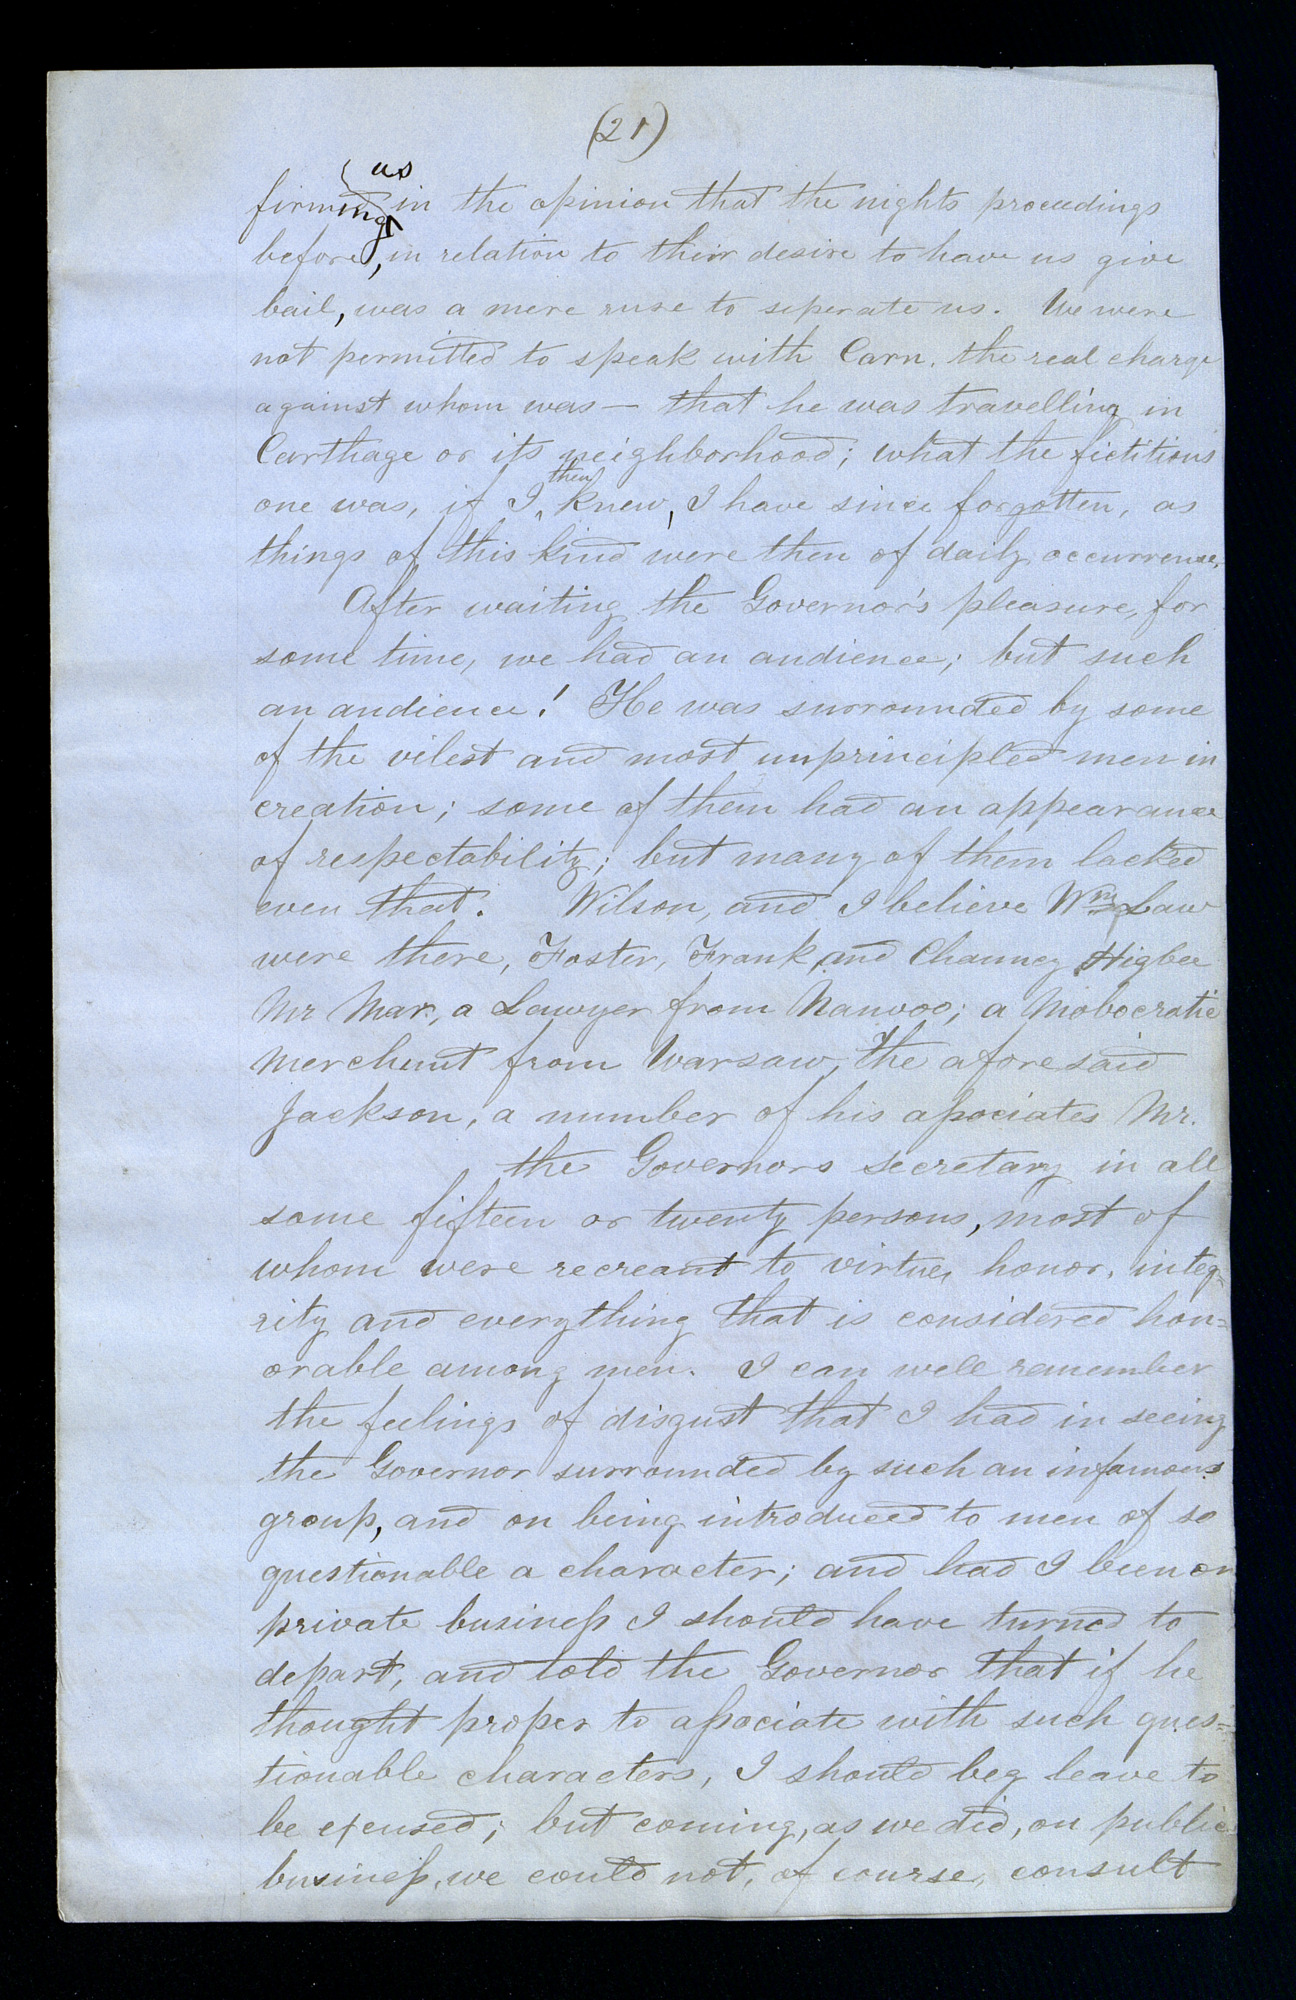 (21)
as
firming in the opinion that the nights proceedings
before, in relation to their desire to have us give
bail, was a mere ruse to seperate us. We were
not permitted to speak with Carn. the real charge
against whom was — that he was travelling in
Carthage or its neighborhood; what the fictitious
then
one was, if I, knew, I have since forgotten, as
things of this kind were then of daily occurrence.
After waiting the Governor's pleasure, for
some time, we had an audience; but such
an audience! He was surrounded by some
of the vilest and most unprincipled men in
creation; some of them had an appearance
of respectability; but many of them lacked
even that. Wilson, and I believe Wm Law
were there, Foster, Frank, and Chauncy Higbee
Mr Mar, a Lawyer from Nauvoo; a Mobocratic
Merchant from Warsaw, the aforesaid
Jackson, a number of his associates Mr.
the Governors secretary in all
some fifteen or twenty persons, most of
whom were recreant to virtue, honor, integ-
rity and everything that is considered hon=
orable among men. I can well remember
the feelings of disgust that I had in seeing
the Governor surrounded by such an infamous
group, and on being introduced to men of so
questionable a character; and had I been on
private business I should have turned to
depart, and told the Governor that if he
thought proper to associate with such ques=
tionable characters, I should beg leave to
be excused; but coming, as we did, on public
business, we could not, of course, consult